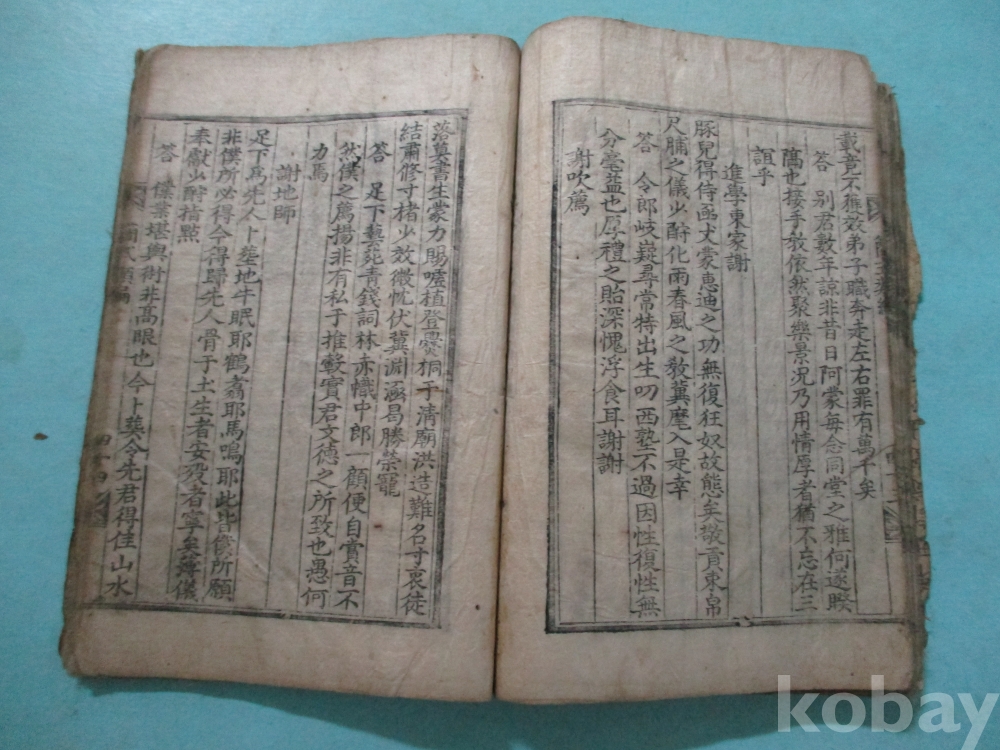 載竟不獲效弟子職奔走左右罪有萬千矣
答 別君數年諒非昔日阿蒙每念同堂之雅何遂睽
隔也接手敎依然聚樂景况乃用情厚者猶不忘在三
誼乎
進學東家謝
豚兒得侍函丈蒙惠迪之功無復狂奴故態矣敬貢束帛
尺脯之儀少酧化雨春風之敎冀麾入是幸
答 令郎岐嶷尋常特出生叨西塾不過因性復性無
分毫益也厚禮之貽深愧浮食耳謝謝
謝吹薦
落莫書生蒙力賜噓植登爨桐于淸廟洪造難名寸衷徒
結肅修寸楮少效微忱伏冀淵涵曷勝榮寵
答 足下藝苑靑錢詞林赤幟中郎一顧便自賞音不
然僕之薦揚非有私于推轂實君文德之所致也愚何
力焉
謝地師
足下爲先人卜塋地牛眠耶鶴翥耶馬鳴耶此皆僕所願
非僕所必得今得歸先人骨于土生者安歿者寧矣薄儀
奉獻少酧指點
答 僕業堪輿術非高眼也今卜葬令先君得佳山水
四十四
kobay